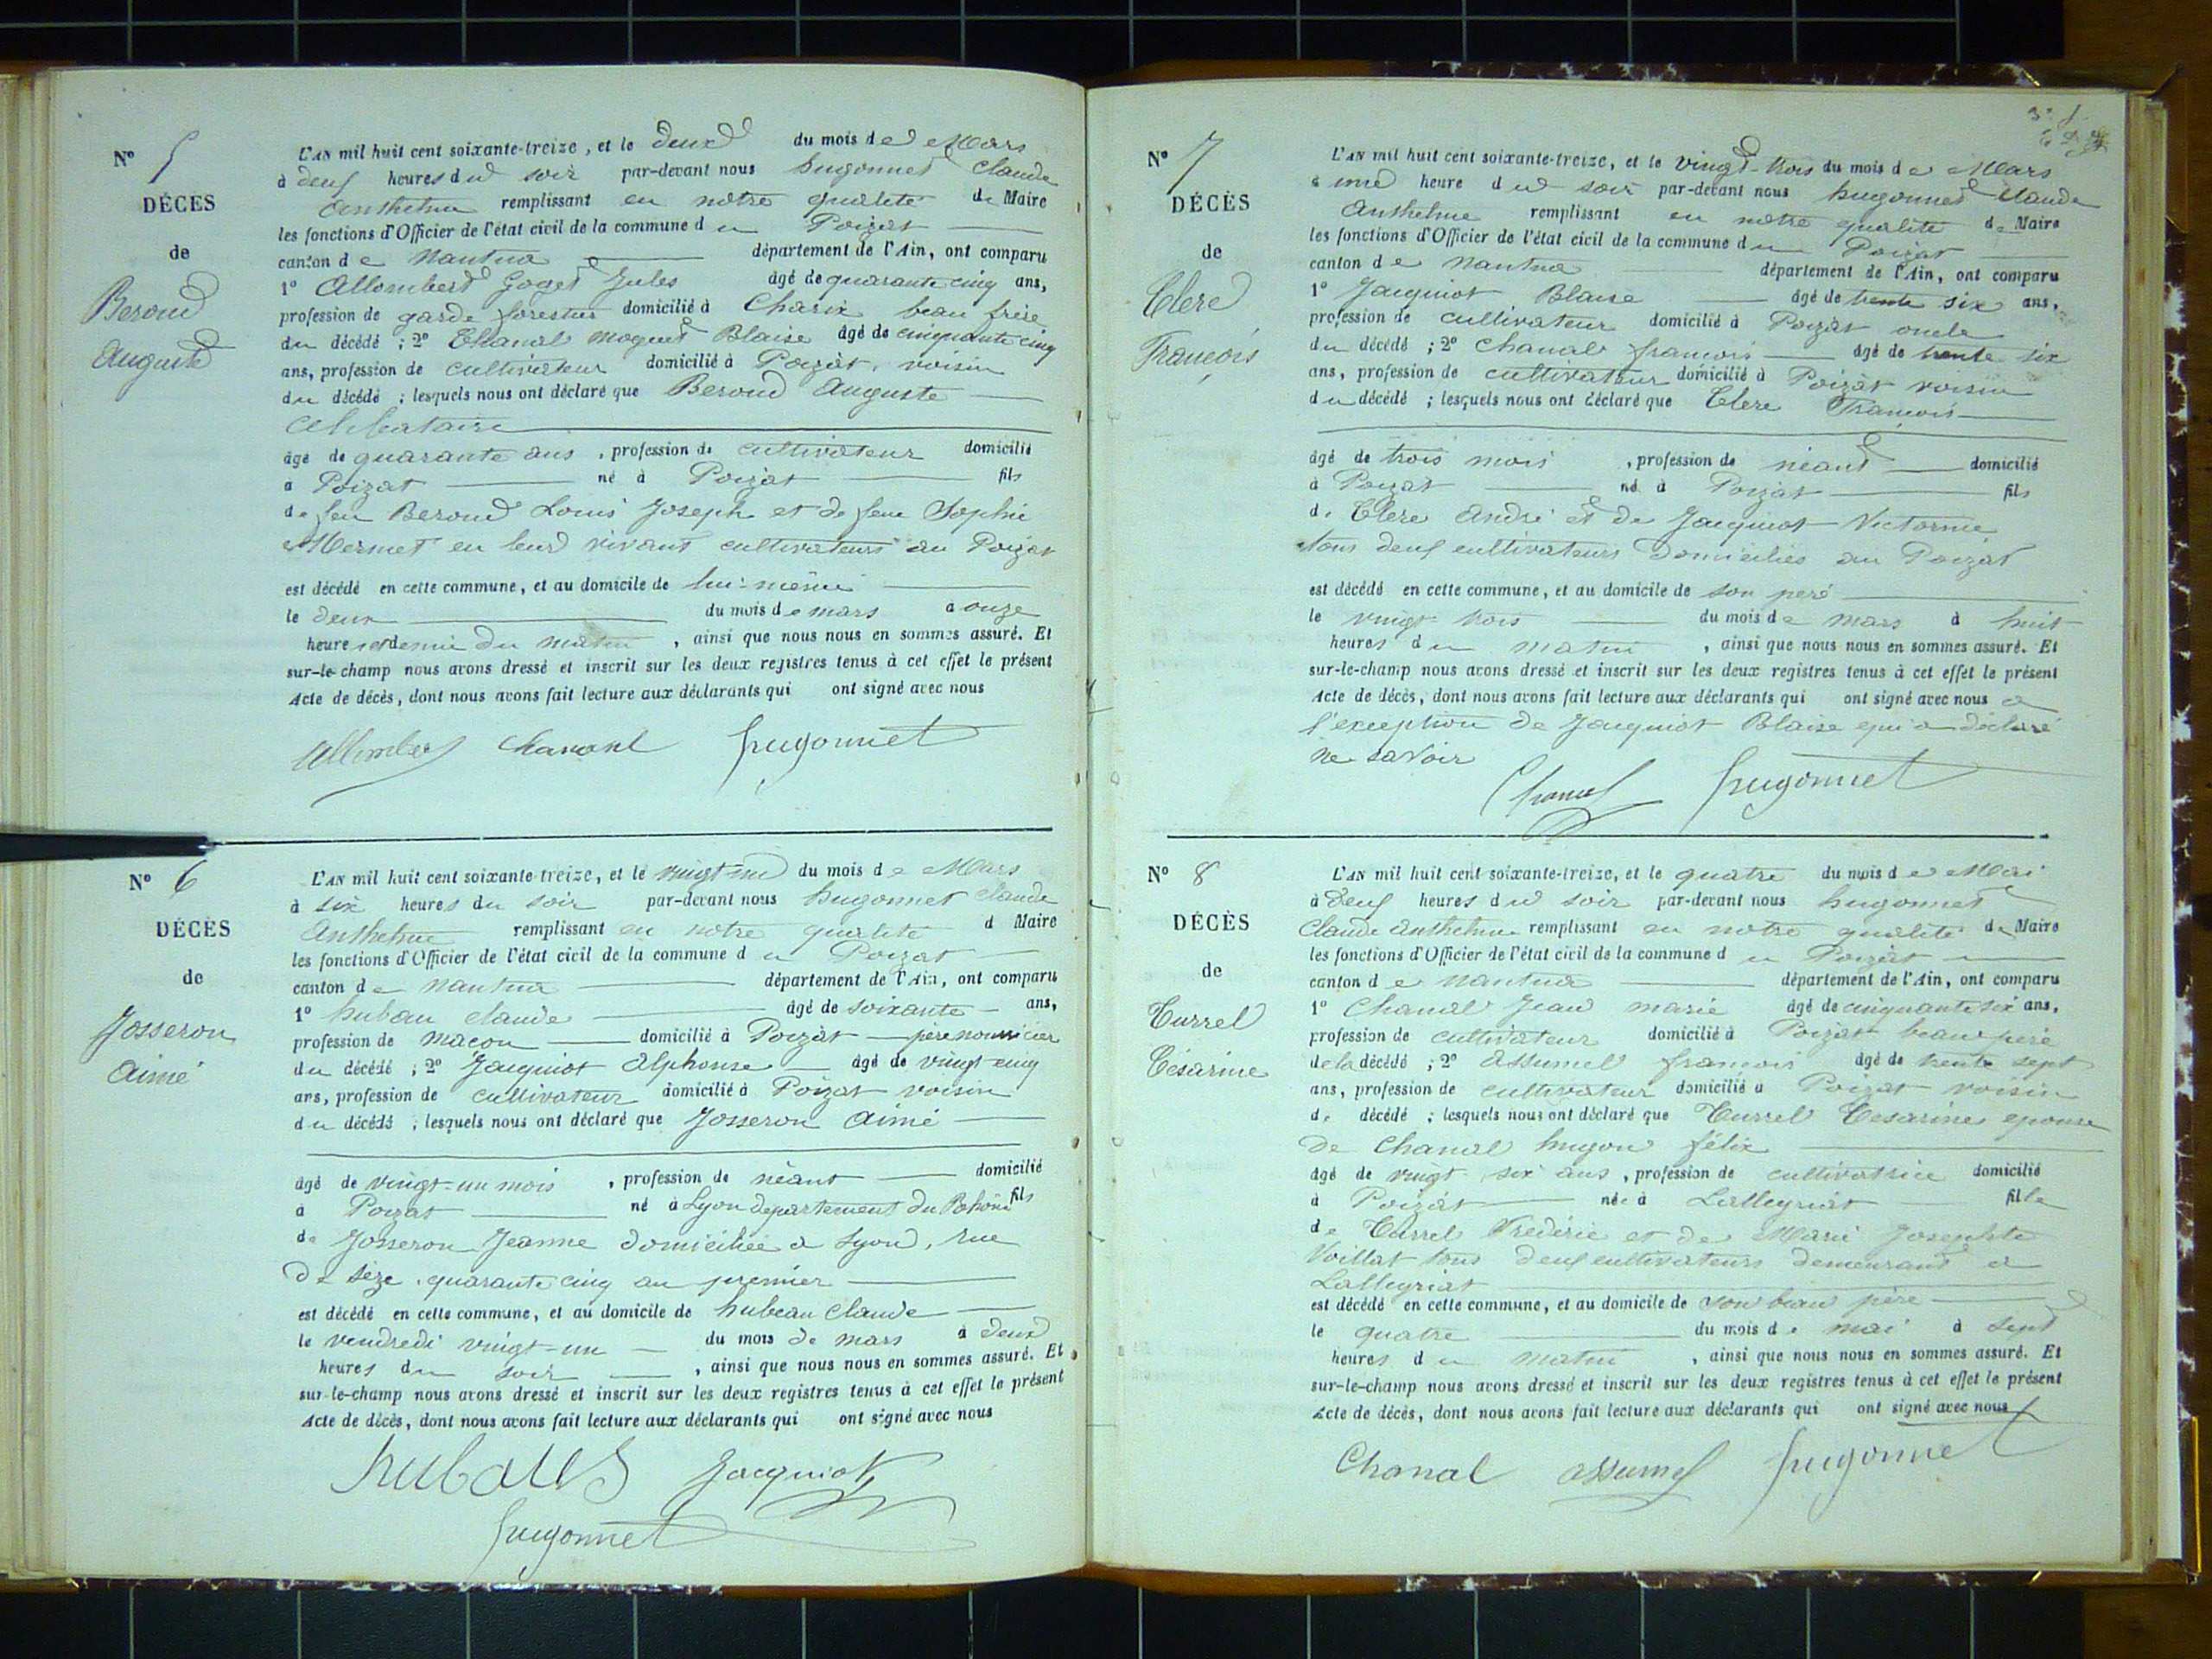 N° 5
DÉCÈS
de
Beroud
Auguste
L'AN mil huit cent soixante-treize, et le deux du mois de Mars
à deux heures du soir par-devant nous hugonnet Claude
Anthelme remplissant en notre qualité de Maire
les fonctions d'Officier de l'état civil de la commune du Poizat
canton de Nantua département de l'Ain, ont comparu
1° Allombert Goget Jules âgé de quarante cinq ans,
profession de garde forestier domicilié à Charix beau frère
du décédé ; 2° Chanal Moquet Blaise âgé de cinquante cinq
ans, profession de cultivateur domicilié à Poizat, voisin
du décédé ; lesquels nous ont déclaré que Beroud Auguste
Celibataire
âgé de quarante ans, profession de cultivateur domicilié
à Poizat né à Poizat fils
de feu Beroud Louis Joseph et de feue Sophie
Mermet en leur vivant cultivateurs au Poizat
est décédé en cette commune, et au domicile de lui-même
le deux du mois de mars à onze
heures et demie du matin, ainsi que nous nous en sommes assuré. Et
sur-le-champ nous avons dressé et inscrit sur les deux registres tenus à cet effet le présent
Acte de décès, dont nous avons fait lecture aux déclarants qui ont signé avec nous
Allombert Chanal hugonnet
N° 6
DÉCÈS
de
Josseron
Aimé
L'AN mil huit cent soixante-treize, et le vingt-un du mois de Mars
à six heures du soir par-devant nous hugonnet Claude
Anthelme remplissant en notre qualité d Maire
les fonctions d'Officier de l'état civil de la commune du Poizat
canton de Nantua département de l'Ain, ont comparu
1° hubeau claude âgé de soixante ans,
profession de macon domicilié à Poizat père nourricier
du décédé ; 2° Jacquiot Alphonse âgé de vingt-cinq
ans, profession de cultivateur domicilié à Poizat voisin
du décédé ; lesquels nous ont déclaré que Josseron Aimé
âgé de vingt-un mois, profession de néant domicilié
à Poizat né à Lyon departement du Rohône fils
de Josseron Jeanne domiciliée a Lyon, rue
de sèze, quarante cinq au premier
est décédé en cette commune, et au domicile de hubeau Claude
le vendredi vingt-un du mois de mars à deux
heures du soir, ainsi que nous nous en sommes assuré. Et
sur-le-champ nous avons dressé et inscrit sur les deux registres tenus à cet effet le présent
Acte de décès, dont nous avons fait lecture aux déclarants qui ont signé avec nous
Jacquiot
hugonnet
N° 7
DÉCÈS
de
Clerc
François
L'AN mil huit cent soixante-treize, et le vingt-trois du mois de Mars
à une heure du soir par-devant nous hugonnet Claude
Anthelme remplissant en notre qualité de Maire
les fonctions d'Officier de l'état civil de la commune du Poizat
canton de Nantua département de l'Ain, ont comparu
1° Jacquiot Blaise âgé de trente six ans,
profession de cultivateur domicilié à Poizat oncle
du décédé ; 2° Chanal françois âgé de trente six
ans, profession de cultivateur domicilié à Poizat voisin
du décédé ; lesquels nous ont déclaré que Clerc François
âgé de trois mois, profession de néant domicilié
à Poizat né à Poizat fils
de Clerc André et de Jacquiot Victorine
tous deux cultivateurs domiciliés au Poizat
est décédé en cette commune, et au domicile de son père
le vingt-trois du mois de mars à huit
heures du matin, ainsi que nous nous en sommes assuré. Et
sur-le-champ nous avons dressé et inscrit sur les deux registres tenus à cet effet le présent
Acte de décès, dont nous avons fait lecture aux déclarants qui ont signé avec nous a
l'exception de Jacquiot Blaise qui a déclaré
ne savoir
Chanal hugonnet
N° 8
DÉCÈS
de
Currel
Césarine
L'AN mil huit cent soixante-treize, et le quatre du mois de Mai
à deux heures du soir par-devant nous hugonnet
Claude Anthelme remplissant en notre qualité de Maire
les fonctions d'Officier de l'état civil de la commune du Poizat
canton de Nantua département de l'Ain, ont comparu
1° Chanal Jean marie âgé de cinquante six ans,
profession de cultivateur domicilié à Poizat beau père
de la décédé ; 2° Assumel françois âgé de trente sept
ans, profession de cultivateur domicilié à Poizat voisin
de décédé ; lesquels nous ont déclaré que Currel Césarine epouse
de Chanal hugon félix
âgé de vingt six ans, profession de cultivatrice domicilié
à Poizat née à Lalleyriat fille
de Currel Frédéric et de Marie Josephte
Voillat tous deux cultivateurs demeurant a
Lalleyriat
est décédé en cette commune, et au domicile de son beau père
le quatre du mois de mai à sept
heures du matin, ainsi que nous nous en sommes assuré. Et
sur-le-champ nous avons dressé et inscrit sur les deux registres tenus à cet effet le présent
Acte de décès, dont nous avons fait lecture aux déclarants qui ont signé avec nous
Chanal assumel hugonnet